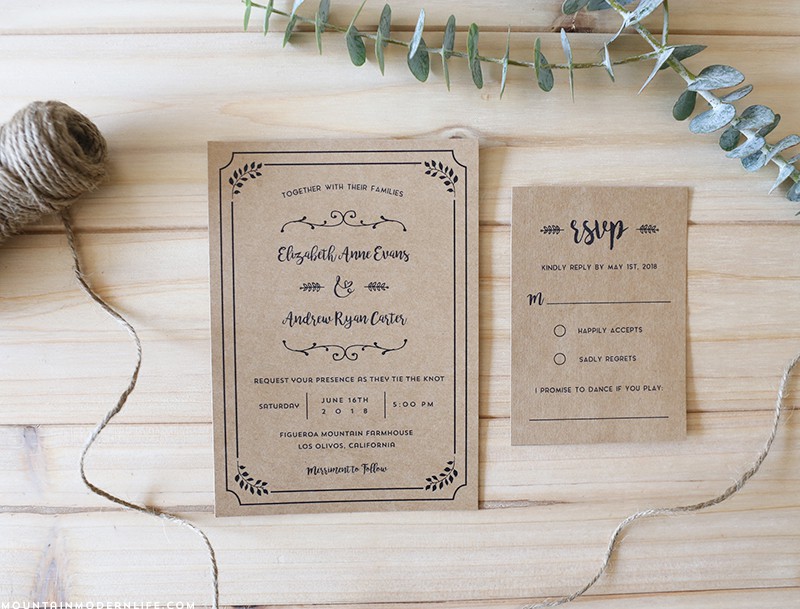 TOGETHER WITH THEIR FAMILIES
Elizabeth Anne Evans
&
Andrew Ryan Carter
REQUEST YOUR PRESENCE AS THEY TIE THE KNOT
SATURDAY JUNE 16TH 5:00 PM
2018
FIGUEROA MOUNTAIN FARMHOUSE
LOS OLIVOS, CALIFORNIA
Merriment to Follow
rsvp
KINDLY REPLY BY MAY 1ST, 2018
M
HAPPILY ACCEPTS
SADLY REGRETS
I PROMISE TO DANCE IF YOU PLAY:
MOUNTAINMODERNLIFE.COM